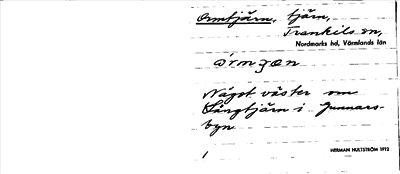 Ormtjärn, tjärn,
Trankils sn,
Nordmarks hd, Värmlands län
Något väster om
Långtjärn i Gunnars-
byn
1
HERMAN HULTSTRÖM 1972